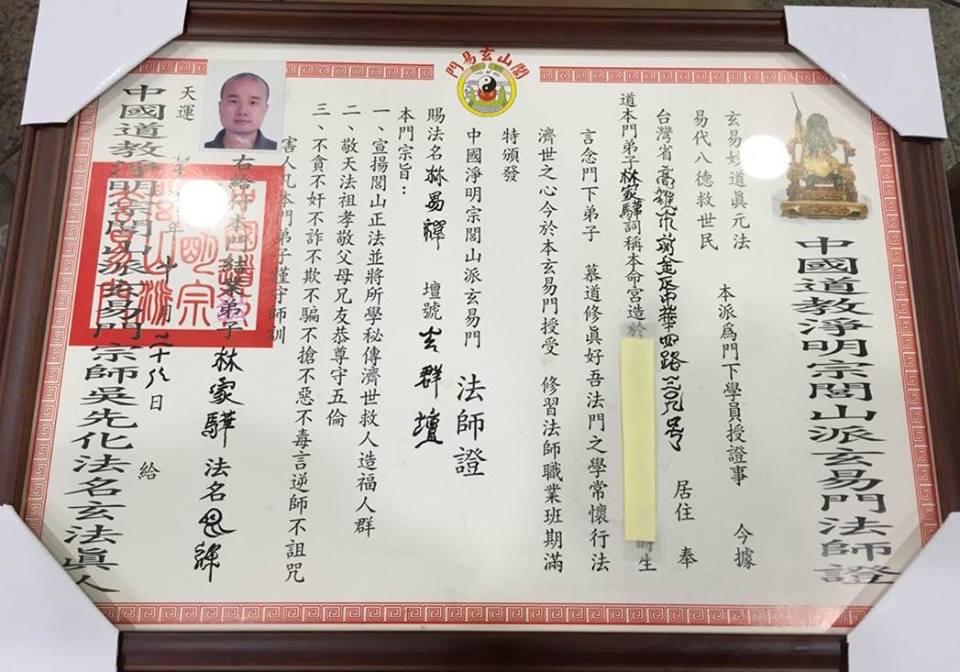 閭山玄易門
中國道教淨明宗閭山派玄易門法師證
玄易妙道眞元法 本派爲門下學員授證事 今據
易代八德救世民
台灣省高雄市前金區中華四路 居住 奉
道本門弟子林家驊詞稱本命宮造於 時生
言念門下弟子 慕道修眞好吾法門之學常懷行法
濟世之心今於本玄易門授受 修習法師職業班期滿
特頒發
中國淨明宗閭山派玄易門 法師證
賜法名林易 壇號 群壇
本門宗旨：
一、宣揚閭山正法並將所學秘傳濟世救人造福人群
二、敬天法祖孝敬父母兄友恭尊守五倫
三、不貪不奸不詐不欺不騙不搶不惡不毒言逆師不詛咒
害人凡本門弟子謹守師訓
右給付本門結業弟子林家驊 法名
天運 年 月 日 給
中國道教淨明宗閭山派玄易門宗師吳先化法名玄法眞人